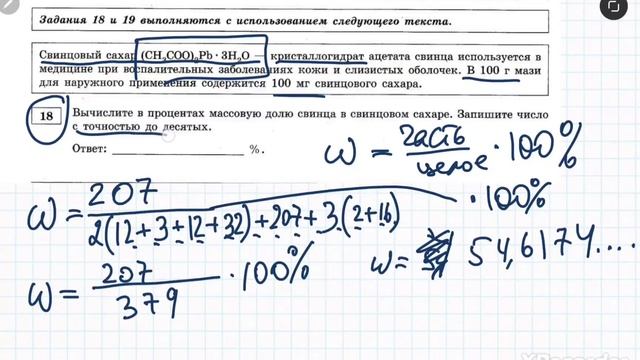 Задания 18 и 19 выполняются с использованием следующего текста.
Свинцовый сахар (CH₃COO)₂Pb · 3H₂O — кристаллогидрат ацетата свинца используется в
медицине при воспалительных заболеваниях кожи и слизистых оболочек. В 100 г мази
для наружного применения содержится 100 мг свинцового сахара.
18 Вычислите в процентах массовую долю свинца в свинцовом сахаре. Запишите число
с точностью до десятых.
Ответ: ____________ %.
ω = часть/целое · 100%
ω = 207/(2(12+3+12+32)+207+3(2+16)) · 100%
ω = 207/379 · 100%
ω = 54,6174....